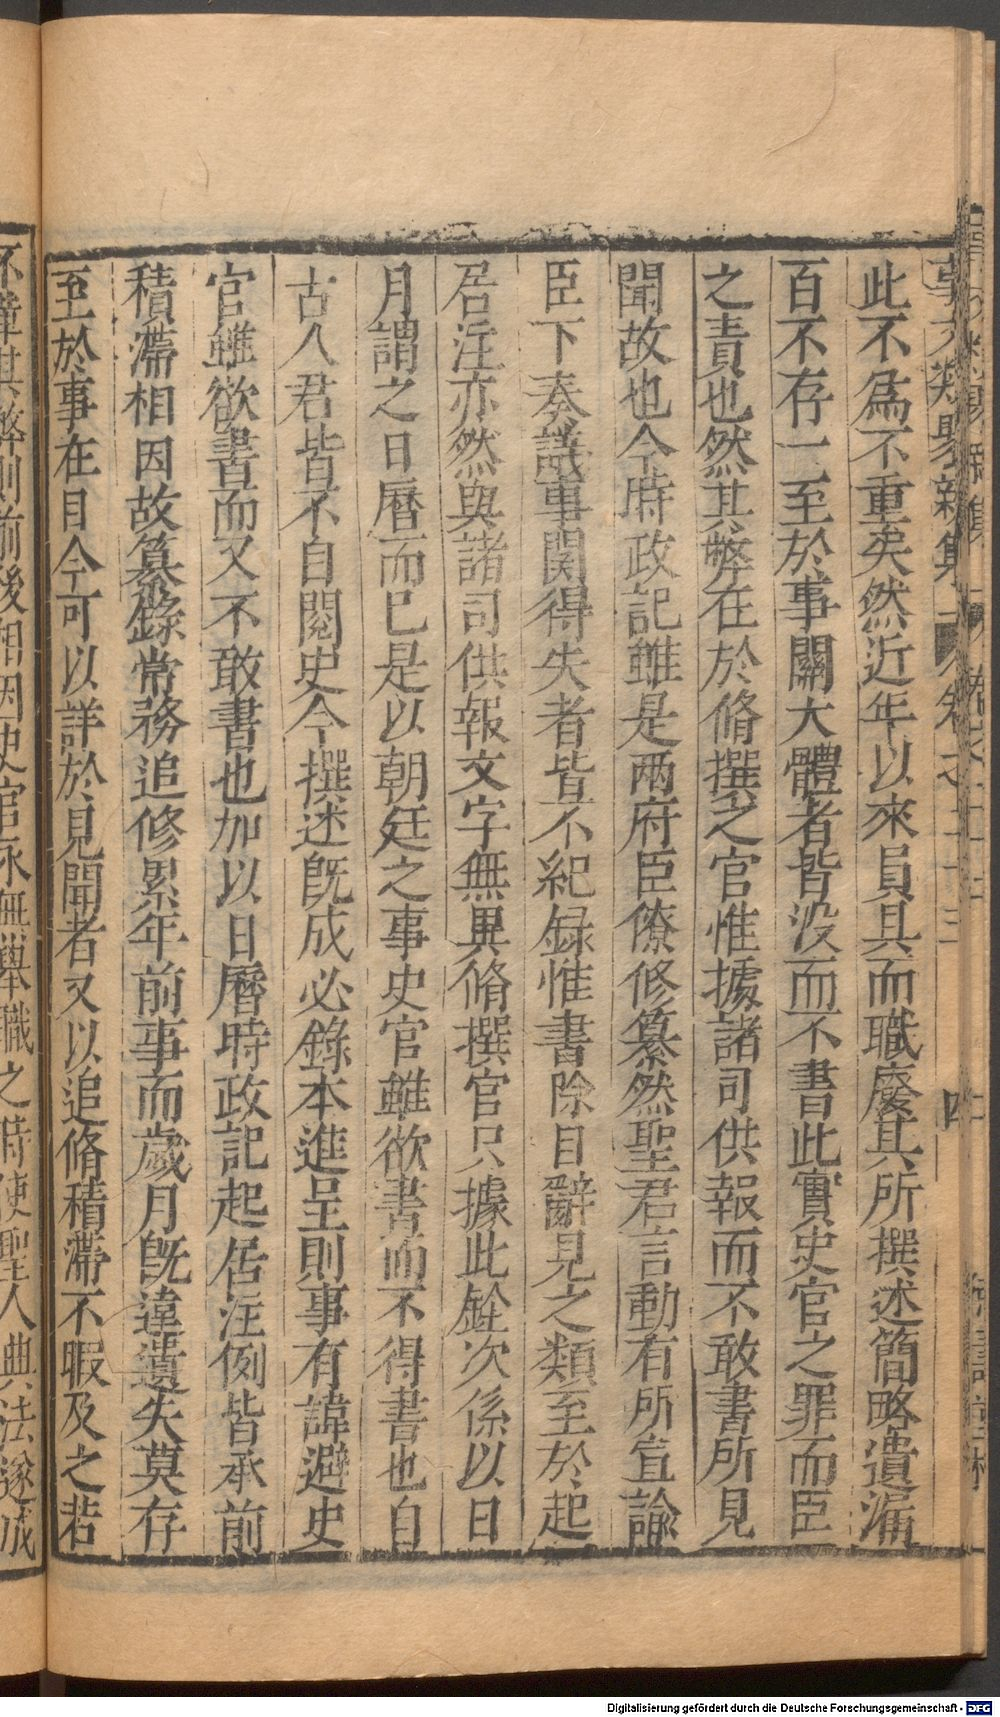 此不為不重矣然近年以來員具而職廢其所撰述簡略遺漏
百不存一至於事關大體者皆沒而不書此實史官之罪而臣
之責也然其弊在於脩撰之官惟據諸司供報而不敢書所見
聞故也今時政記雖是兩府臣僚修纂然聖君言動有所宣諭
臣下奏議事関得失者皆不紀録惟書除目辭見之類至於起
居注亦然與諸司供報文字無異脩撰官只據此銓次係以日
月謂之日曆而已是以朝廷之事史官雖欲書而不得書也自
古人君皆不自閱史今撰述既成必錄本進呈則事有諱避史
官雖欲書而又不敢書也加以日曆時政記起居注例皆承前
積滯相因故纂錄常務追修累年前事而歲月既違遺失莫存
至於事在目今可以詳於見聞者又以追脩積滯不暇及之若
不革其弊則前後相因史官永無舉職之時使聖人典法遂成
Digitalisierung gefördert durch die Deutsche Forschungsgemeinschaft - DFG